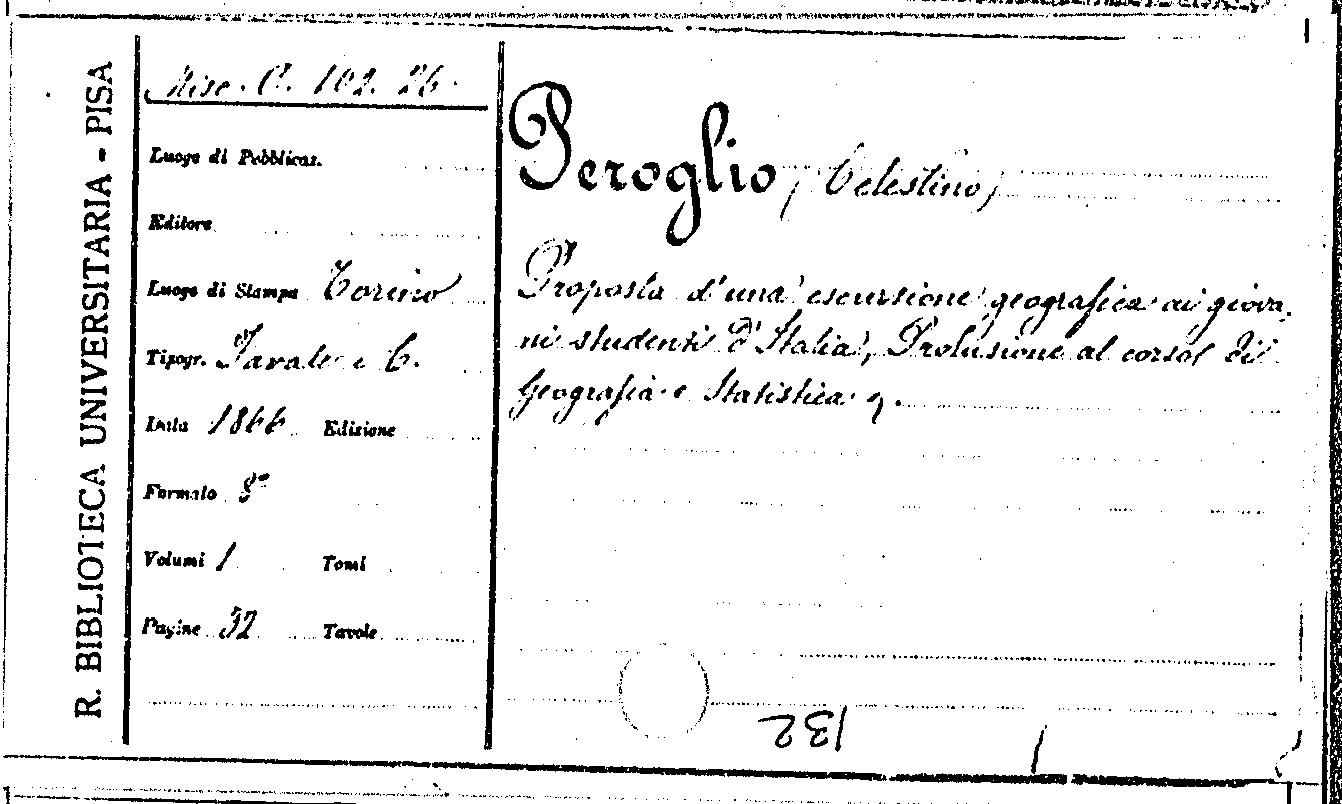 R. BIBLIOTECA UNIVERSITARIA - PISA
Misc. C. 102. 26.
Luogo di Pubblicaz.
Editore
Luogo di Stampa Torino
Tipogr. Favale e C.
Data 1866 Edizione
Formato 8°
Volumi 1 Tomi
Pagine 32 Tavole
Peroglio (Celestino)
Proposta d'una escursione geografica ai giova-
ni studenti d'Italia, Prolusione al corso di
Geografia e Statistica
132